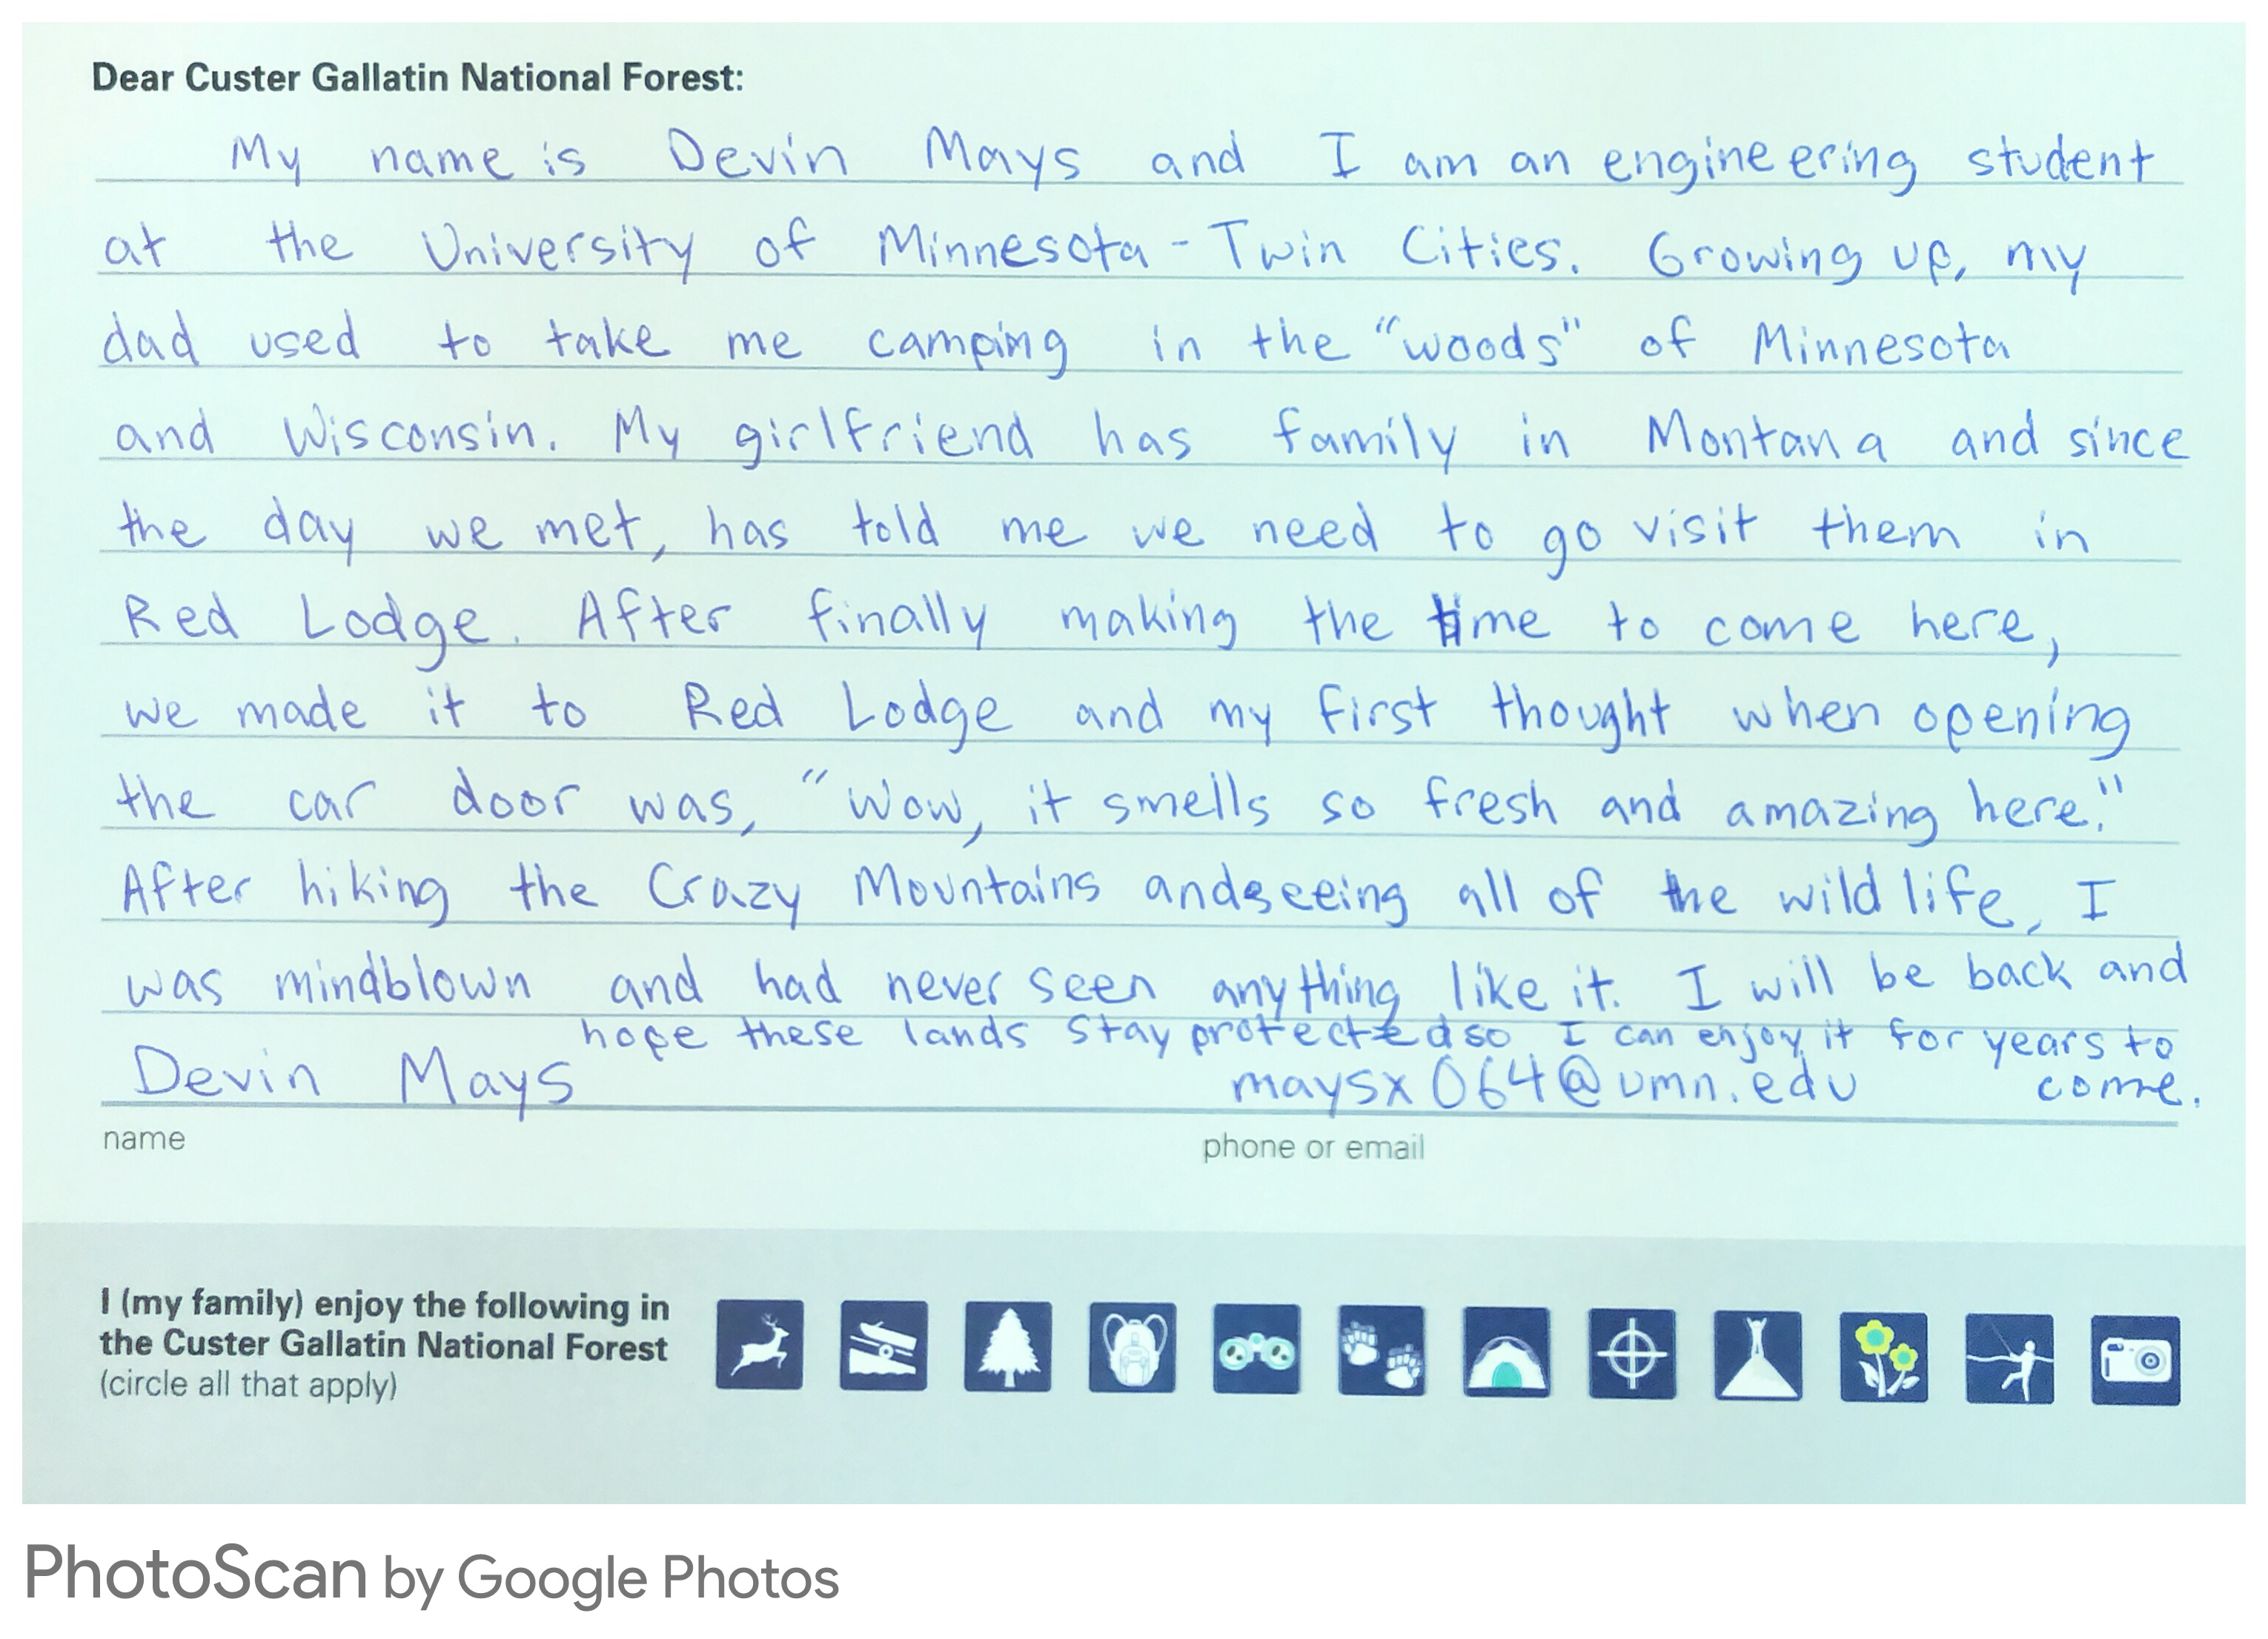 Dear Custer Gallatin National Forest:
My name is Devin Mays and I am an engineering student
at the University of Minnesota - Twin Cities. Growing up, my
dad used to take me camping in the "woods" of Minnesota
and Wisconsin. My girlfriend has family in Montana and since
the day we met, has told me we need to go visit them in
Red Lodge. After finally making the time to come here,
we made it to Red Lodge and my first thought when opening
the car door was, "Wow, it smells so fresh and amazing here."
After hiking the Crazy Mountains and seeing all of the wildlife, I
was mindblown and had never seen anything like it. I will be back and
hope these lands stay protected so I can enjoy it for years to
come.
Devin Mays
maysx064@umn.edu
name
phone or email
I (my family) enjoy the following in
the Custer Gallatin National Forest
(circle all that apply)
PhotoScan by Google Photos